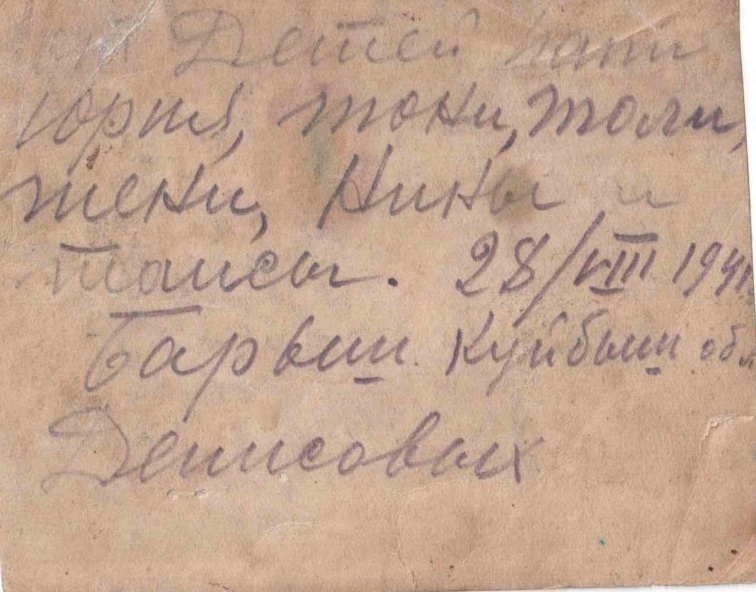 от Детей папи
Юрия, тони, толи,
жени, Нины и
таисы. 28/VIII 1941
Барыш Куйбыш обл
Денисовых